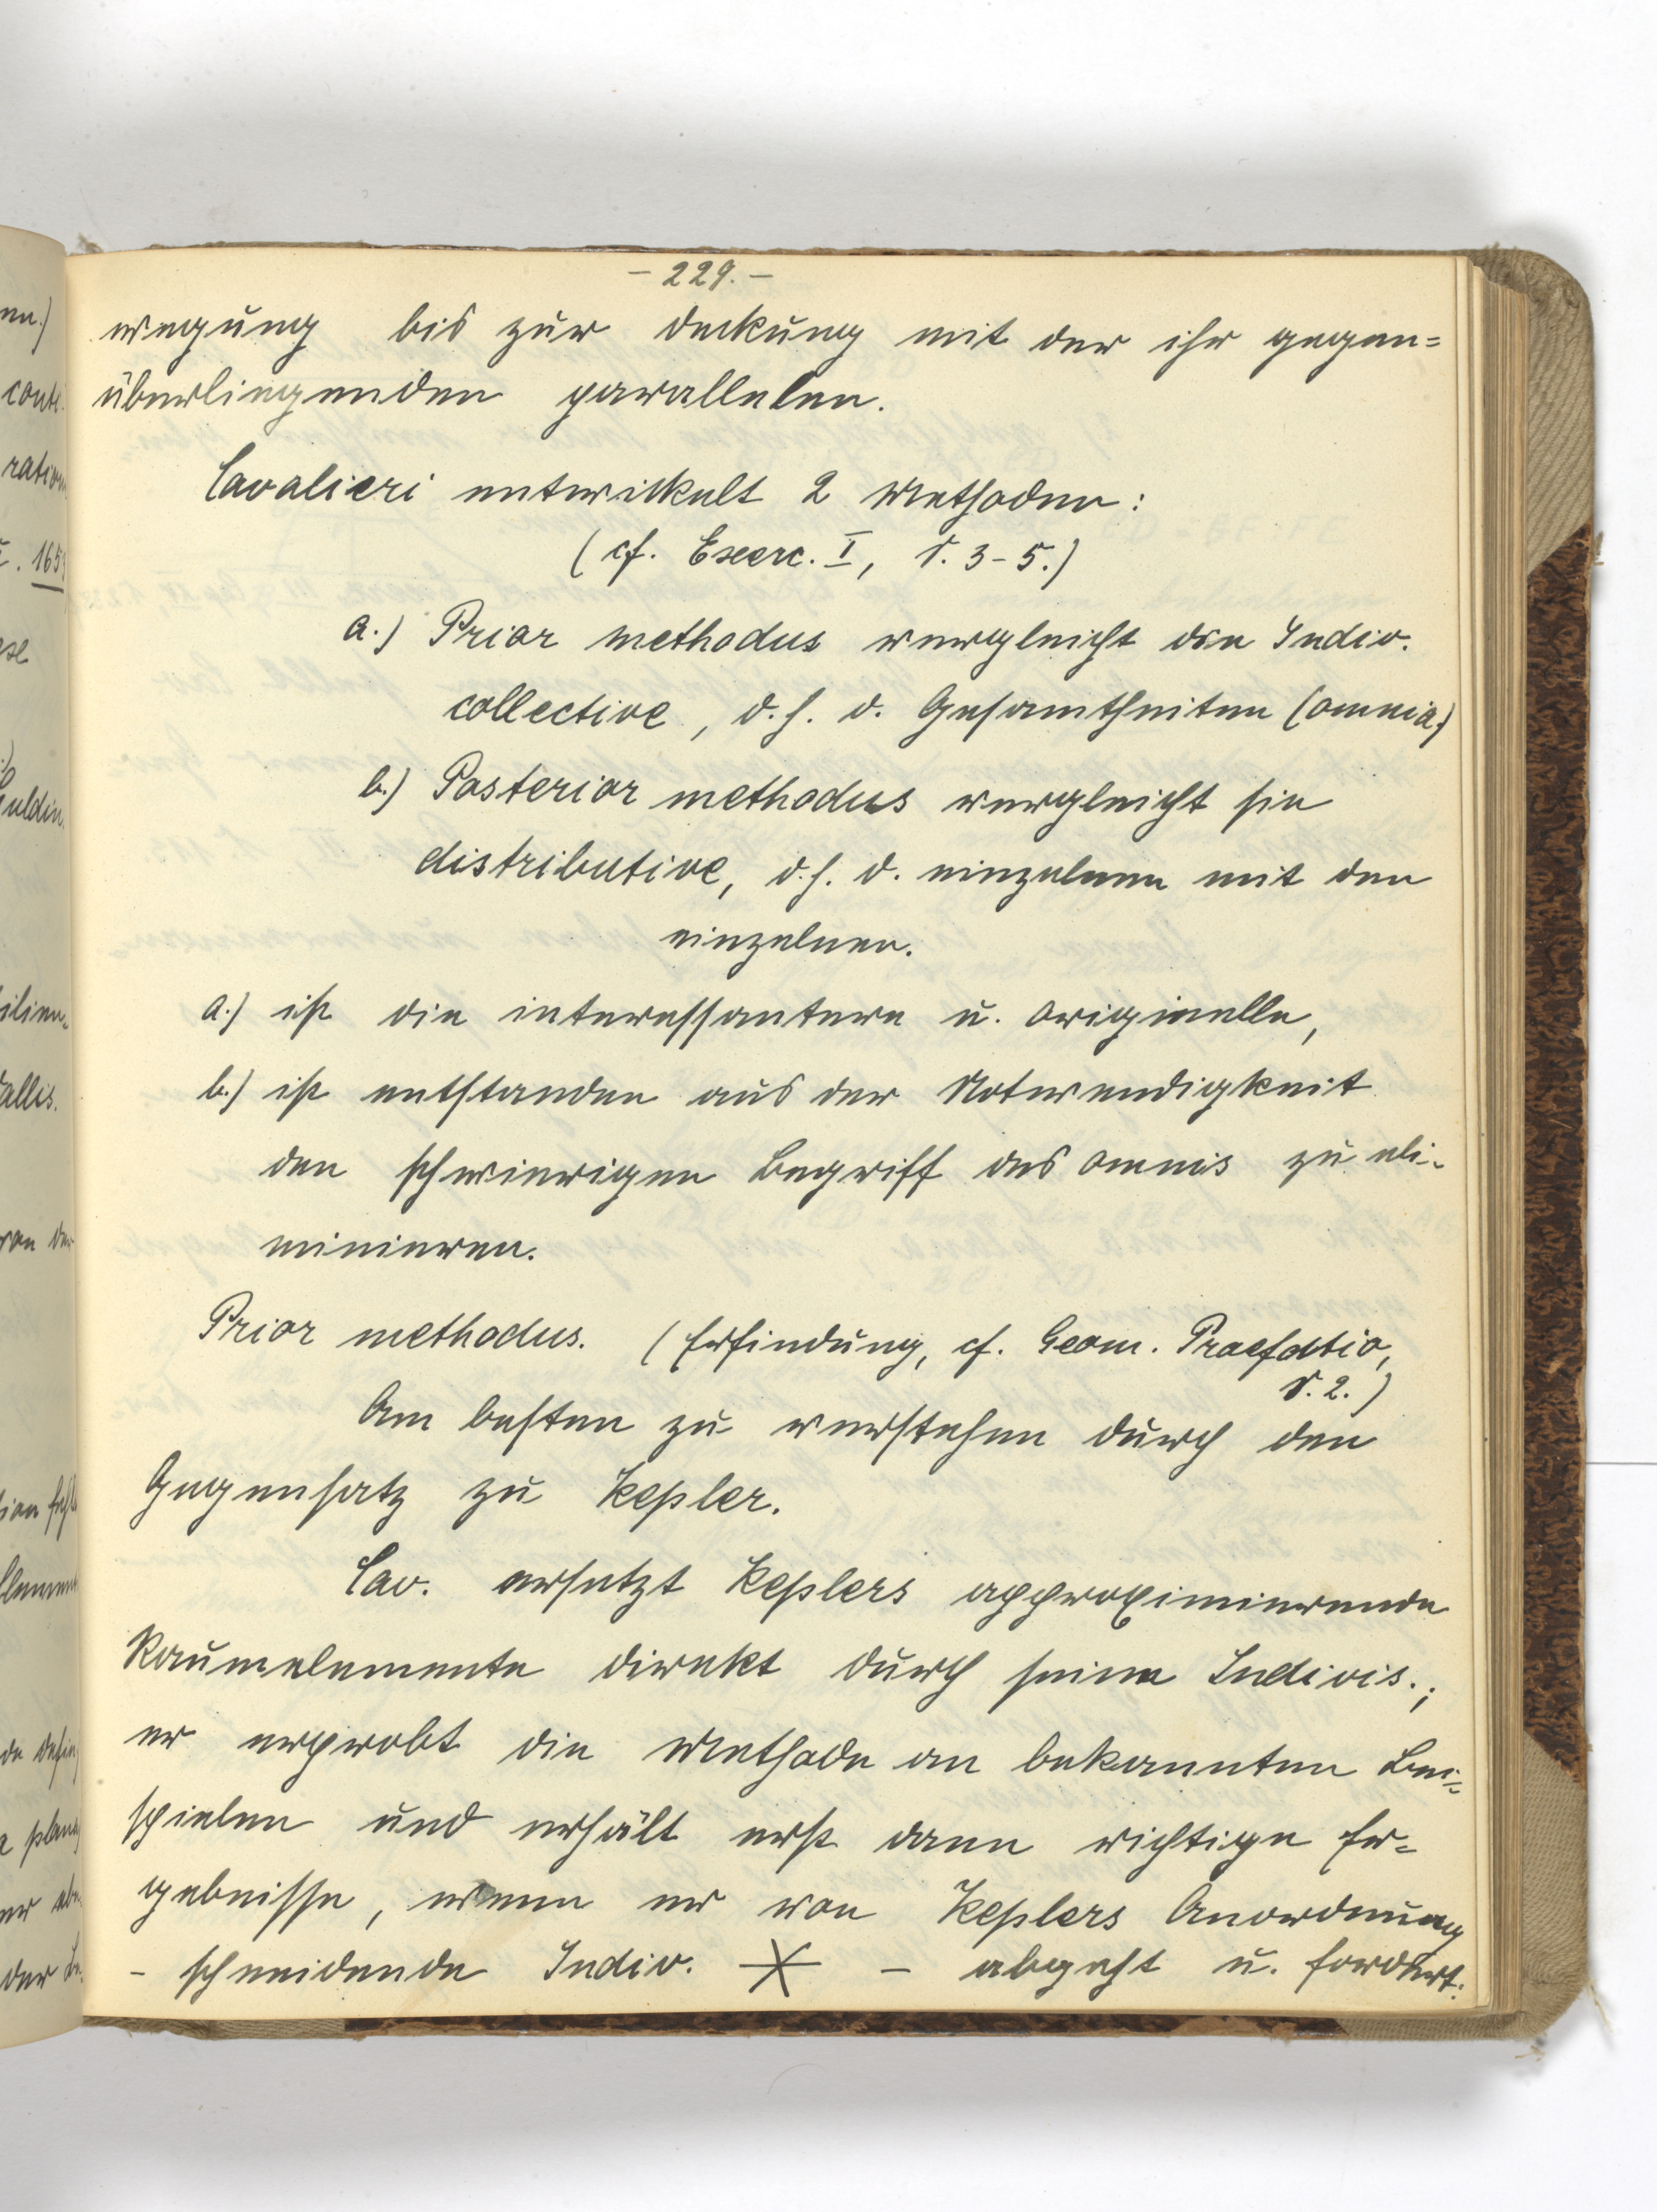 - 229. -
wegung bis zur deckung mit der ihr gegen=
überliegenden parallelen.
Cavalieri entwickelt 2 Methoden:
(cf. Exerc. I, S. 3-5.)
a.) Prior methodus vergleicht die Indiv.
collective, d. h. d. Gesamtheiten (omnia)
b.) Posterior methodus vergleicht sie
distributive, d. h. d. einzelnen mit den
einzelnen.
a.) ist die interessantere u. originelle,
b.) ist entstanden aus der Notwendigkeit
den schwierigen Begriff des omnis zu eli-
minieren.
Prior methodus. (Erfindung, cf. Geom. Praefatio,
S. 2.)
Am besten zu verstehen durch den
Gegensatz zu Kepler.
Cav. ersetzt Keplers approximierende
Raumelemente direkt durch seine Indivis.;
er erprobt die Methode an bekannten Bei=
spielen und erhält erst dann richtige Er=
gebnisse, wenn er von Keplers Anordnung
- schneidende Indiv. - abgeht u. fordert:
nn.)
conti
ration
. 165
ese
uldin.
ilien=
allis.
von der